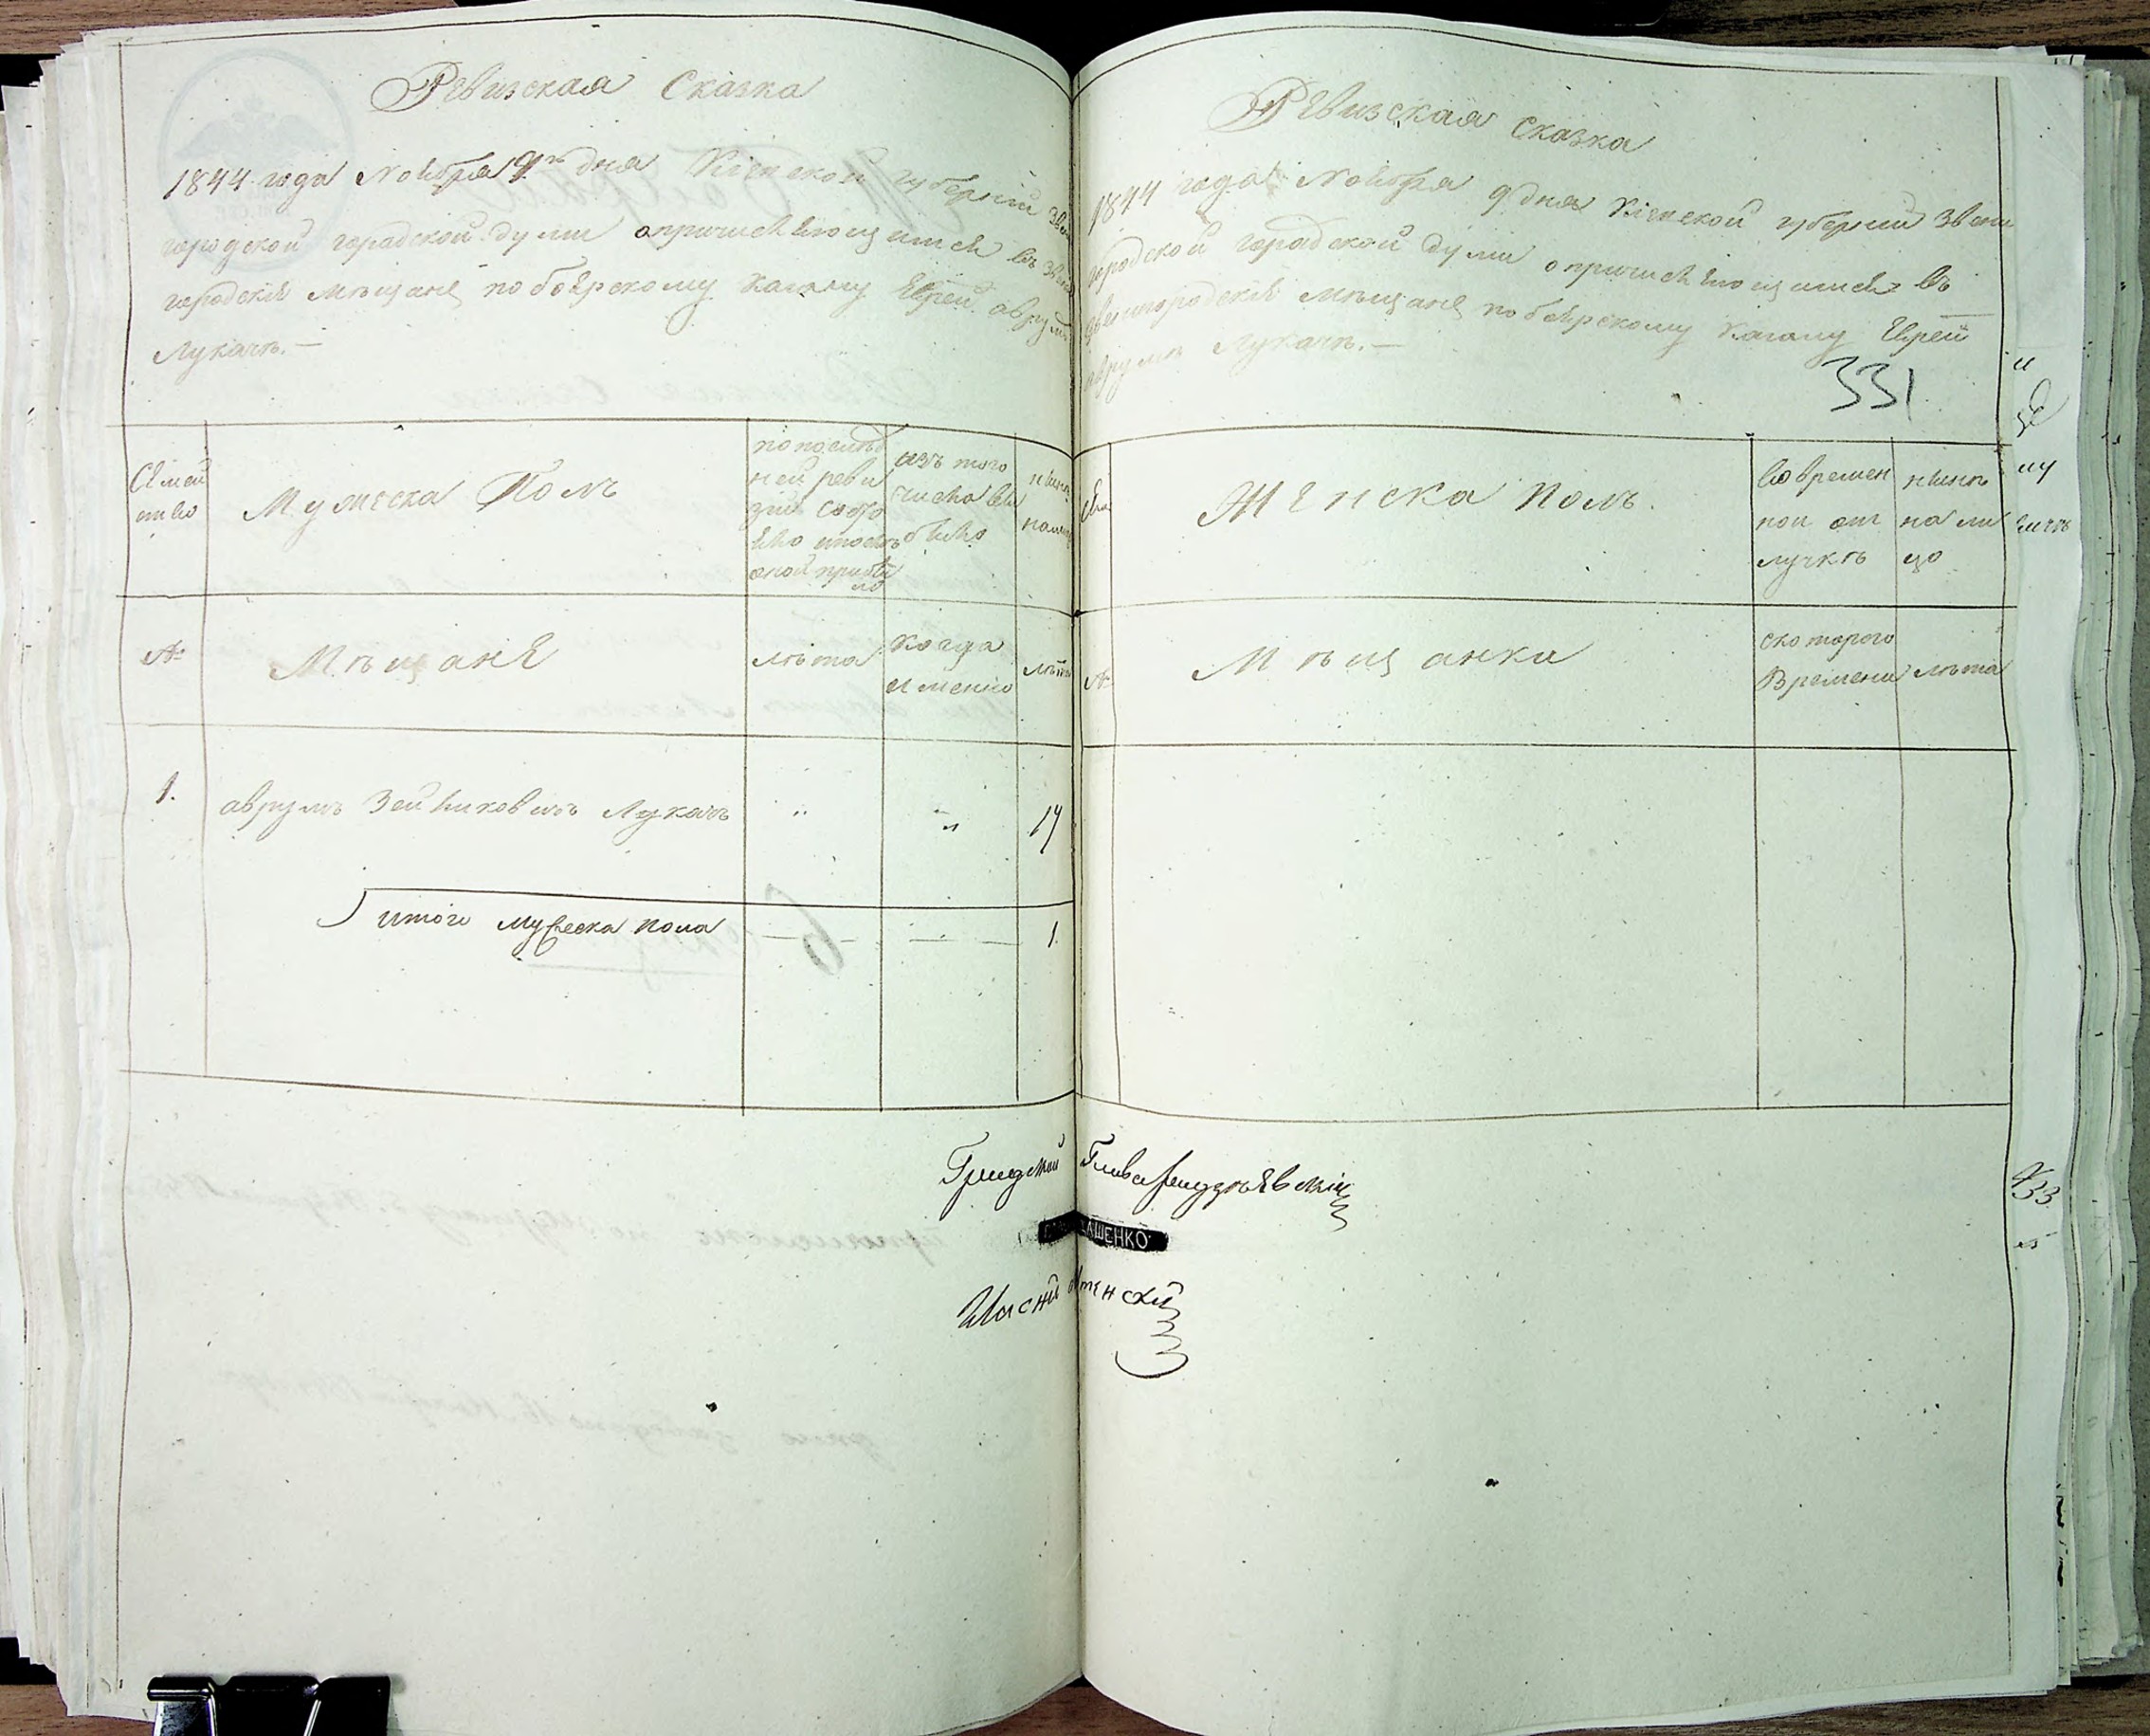 Ревизская Сказка
1844 года Ноября 9го дня Кіевской губерніи Звени
городской городской думи опричисляющимся въ Звени
городскія мѣщане по боярскому кагалу Еврей аврумъ
Лукачъ.—
Семей
ство
Мужеска Полъ
по послѣд
ней реви
зіи состо
яло и послѣ
оной прибы
ло
изъ того
числа вы
было
нынѣ
налицо
№
Мѣщане
лѣта
когда
именно
лѣта
1.
аврумъ Зейликовичъ Лукачъ
"
"
19
итого мужеска пола — — — 1.
Ревизская сказка
1844 года Ноября 9 дня Кіевской губерніи Звени
городской городской думи опричисляющимся въ
звенигородскія мѣщане по боярскому кагалу Еврей
аврумъ Лукачъ.—
331
Женска полъ.
во времен
ной от
лучкѣ
нынѣ
на ли
цо
№
Мѣщанки
с котораго
времени
лѣта
Градской Глива
АШЕНКО
Гласный